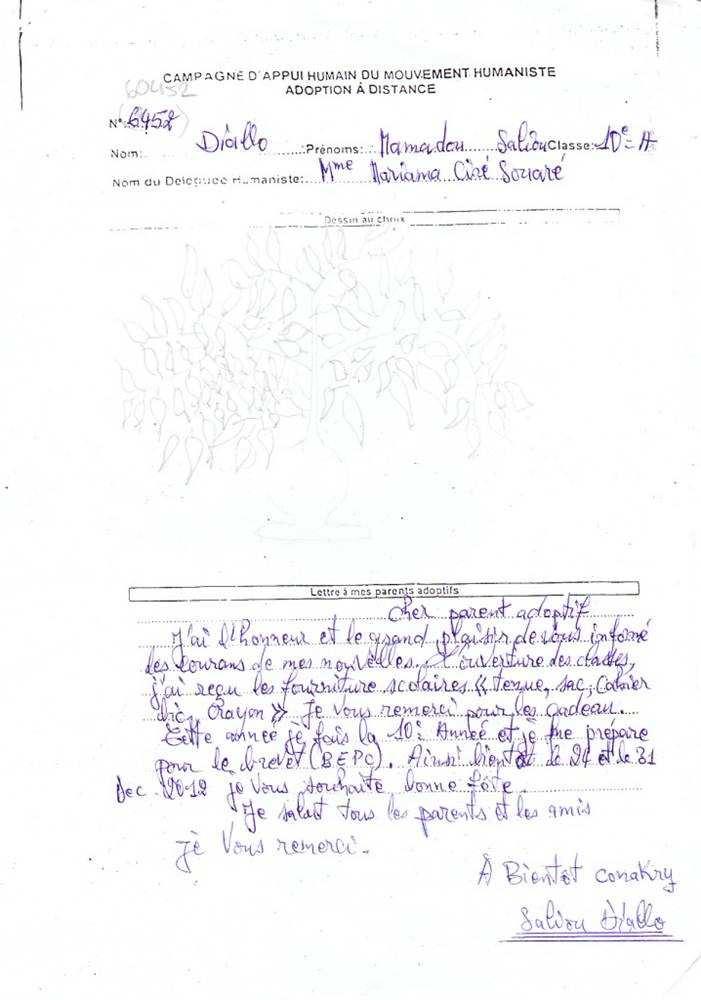 CAMPAGNE D'APPUI HUMAIN DU MOUVEMENT HUMANISTE
ADOPTION À DISTANCE
60452
N° 6452
Nom: Diallo Prénoms: Mamadou Saliou Classe: 10e A
Nom du Déléguée Humaniste: Mme Mariama Ciré Souaré
Dessin au choix
Lettre à mes parents adoptifs
Cher parent adoptif
J'ai l'honneur et le grand plaisir de vous informé
les courans de mes nouvelles. L'ouverture des classes,
j'ai reçu les fourniture scolaires « tenue, sac, Cahier
bic, Crayon » Je vous remerci pour les cadeau.
Cette année je fais la 10e Année et je me prépare
pour le brevet (BEPC). Ainsi bientôt le 24 et le 31
Dec. 2012 je vous souhaite bonne fête.
Je salut tous les parents et les amis
Je Vous remerci.
À Bientôt conakry
Saliou Diallo